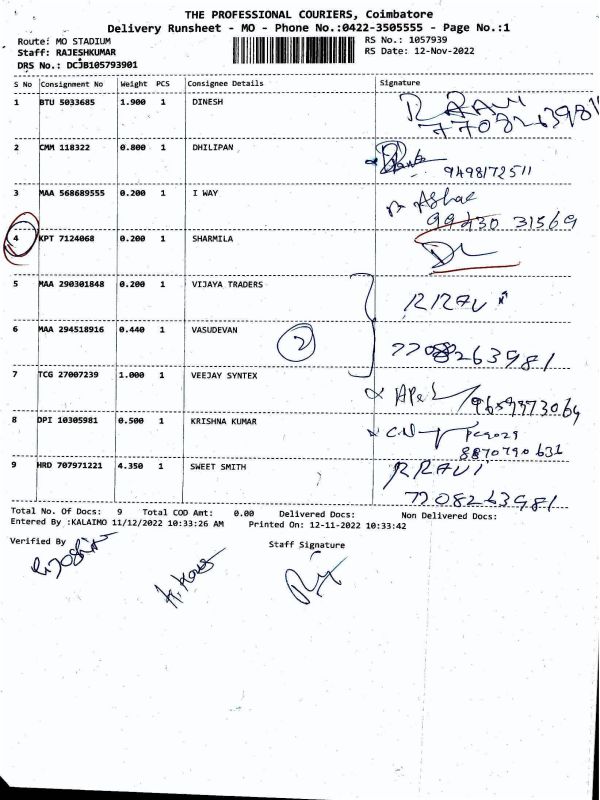 THE PROFESSIONAL COURIERS, Coimbatore
Delivery Runsheet - MO - Phone No.:0422-3505555 - Page No.:1
Route: MO STADIUM
RS No.: 1057939
Staff: RAJESHKUMAR
RS Date: 12-Nov-2022
DRS No.: DCJB105793901
S No Consignment No Weight PCS Consignee Details Signature
1 BTU 5033685 1.900 1 DINESH R RAVI
2 CMM 118322 0.800 1 DHILIPAN 9498172511
3 MAA 568689555 0.200 1 I WAY
99430 31569
4 KPT 7124068 0.200 1 SHARMILA
5 MAA 290301848 0.200 1 VIJAYA TRADERS R RAVI
6 MAA 294518916 0.440 1 VASUDEVAN 2 7708263981
7 TCG 27007239 1.000 1 VEEJAY SYNTEX
8 DPI 10305981 0.500 1 KRISHNA KUMAR
8870790631
9 HRD 707971221 4.350 1 SWEET SMITH R RAVI
7708263981
Total No. Of Docs: 9 Total COD Amt: 0.00 Delivered Docs: Non Delivered Docs:
Entered By :KALAIMO 11/12/2022 10:33:26 AM Printed On: 12-11-2022 10:33:42
Verified By Staff Signature